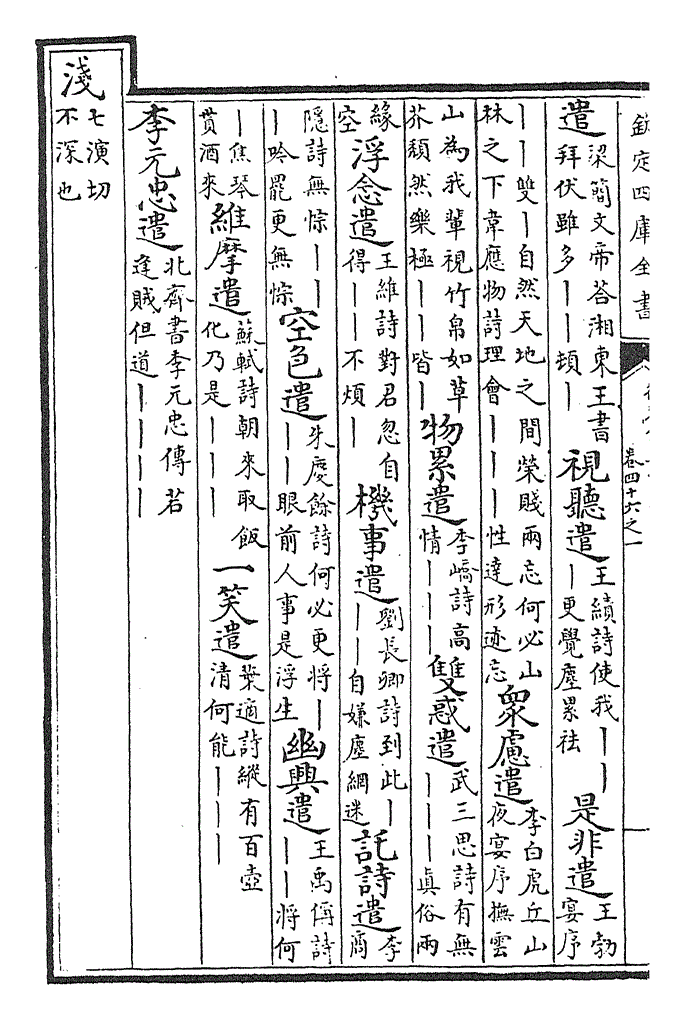 欽定四庫全書
卷四十六之一
遣
梁簡文帝荅湘東王書
拜伏雖多丨丨頓丨
視聽遣
王績詩使我丨丨
丨更覺塵累祛
是非遣
王勃
宴序
丨丨雙丨自然天地之間榮賤兩忘何必山
林之下韋應物詩理會丨丨丨性達形迹忘
眾慮遣
李白虎丘山
夜宴序撫雲
山為我輩視竹帛如草
芥頹然樂極丨丨皆丨
物累遣
李嶠詩高
情丨丨丨
雙惑遣
武三思詩有無
丨丨丨真俗兩
緣
空
浮念遣
王維詩對君忽自
得丨丨不煩丨
機事遣
劉長卿詩到此丨
丨丨自嫌塵網迷
託詩遣
李
商
隱詩無悰丨丨
丨吟罷更無悰
空色遣
朱慶餘詩何必更將丨
丨丨眼前人事是浮生
幽興遣
王禹偁詩
丨丨將何
丨焦琴
貰酒來
維摩遣
蘇軾詩朝來取飯
化乃是丨丨丨
一笑遣
葉適詩縱有百壺
清何能丨丨丨
李元忠遣
北齊書李元忠傳若
逢賊但道丨丨丨丨
淺
七演切
不深也